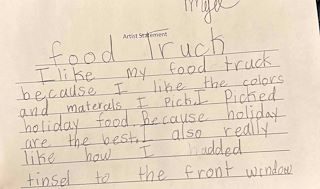 Artist Statement
food Truck
I like my food truck
because I like the colors
and materals I pick.I Picked
holiday food. Because holiday
are the best. I also really
like how I hadded
tinsel to the front window